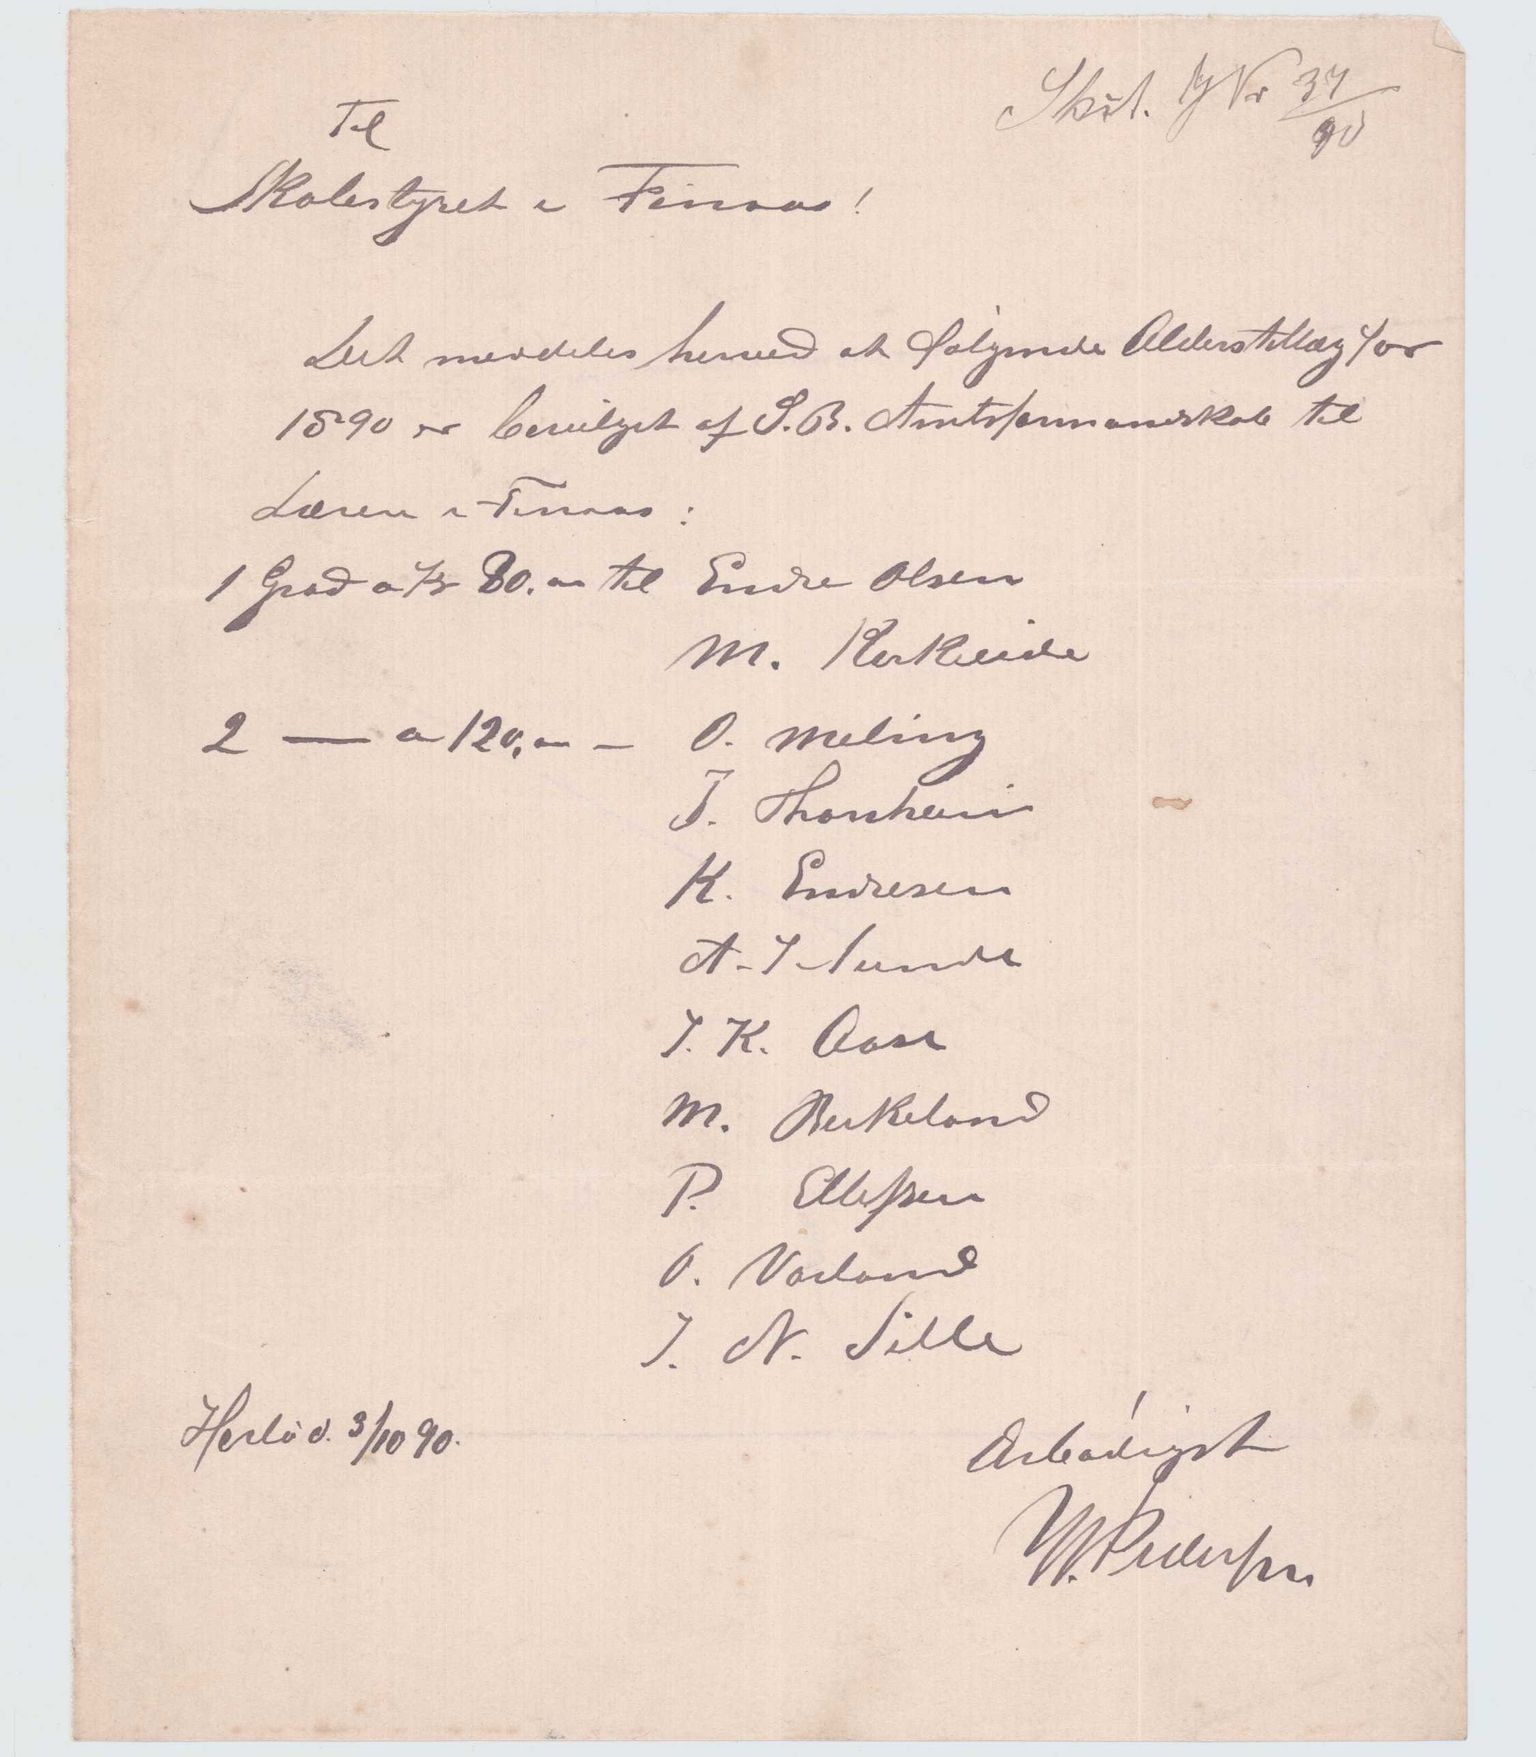 Skst. J Nr 37/90
Til
Skolestyret i Finnaas!
Det meddeles herved at følgende Alderstillæg for
1890 er bevilget af S. B. Amtsformandskab til
Lærere i Finnaas:
1 Grad a Kr 80.00 til Endre Olsen
M. Kirkeeide
2 — a 120,00 — O. Meling
J. Thorsheim
K. Endresen
A. J. Sunde
J. K. Aase
M. Birkeland
P. Ellefsen
O. Vorland
J. N. Sille
Herlø d. 3/10 90.
Ærbødigst
M. Pedersen